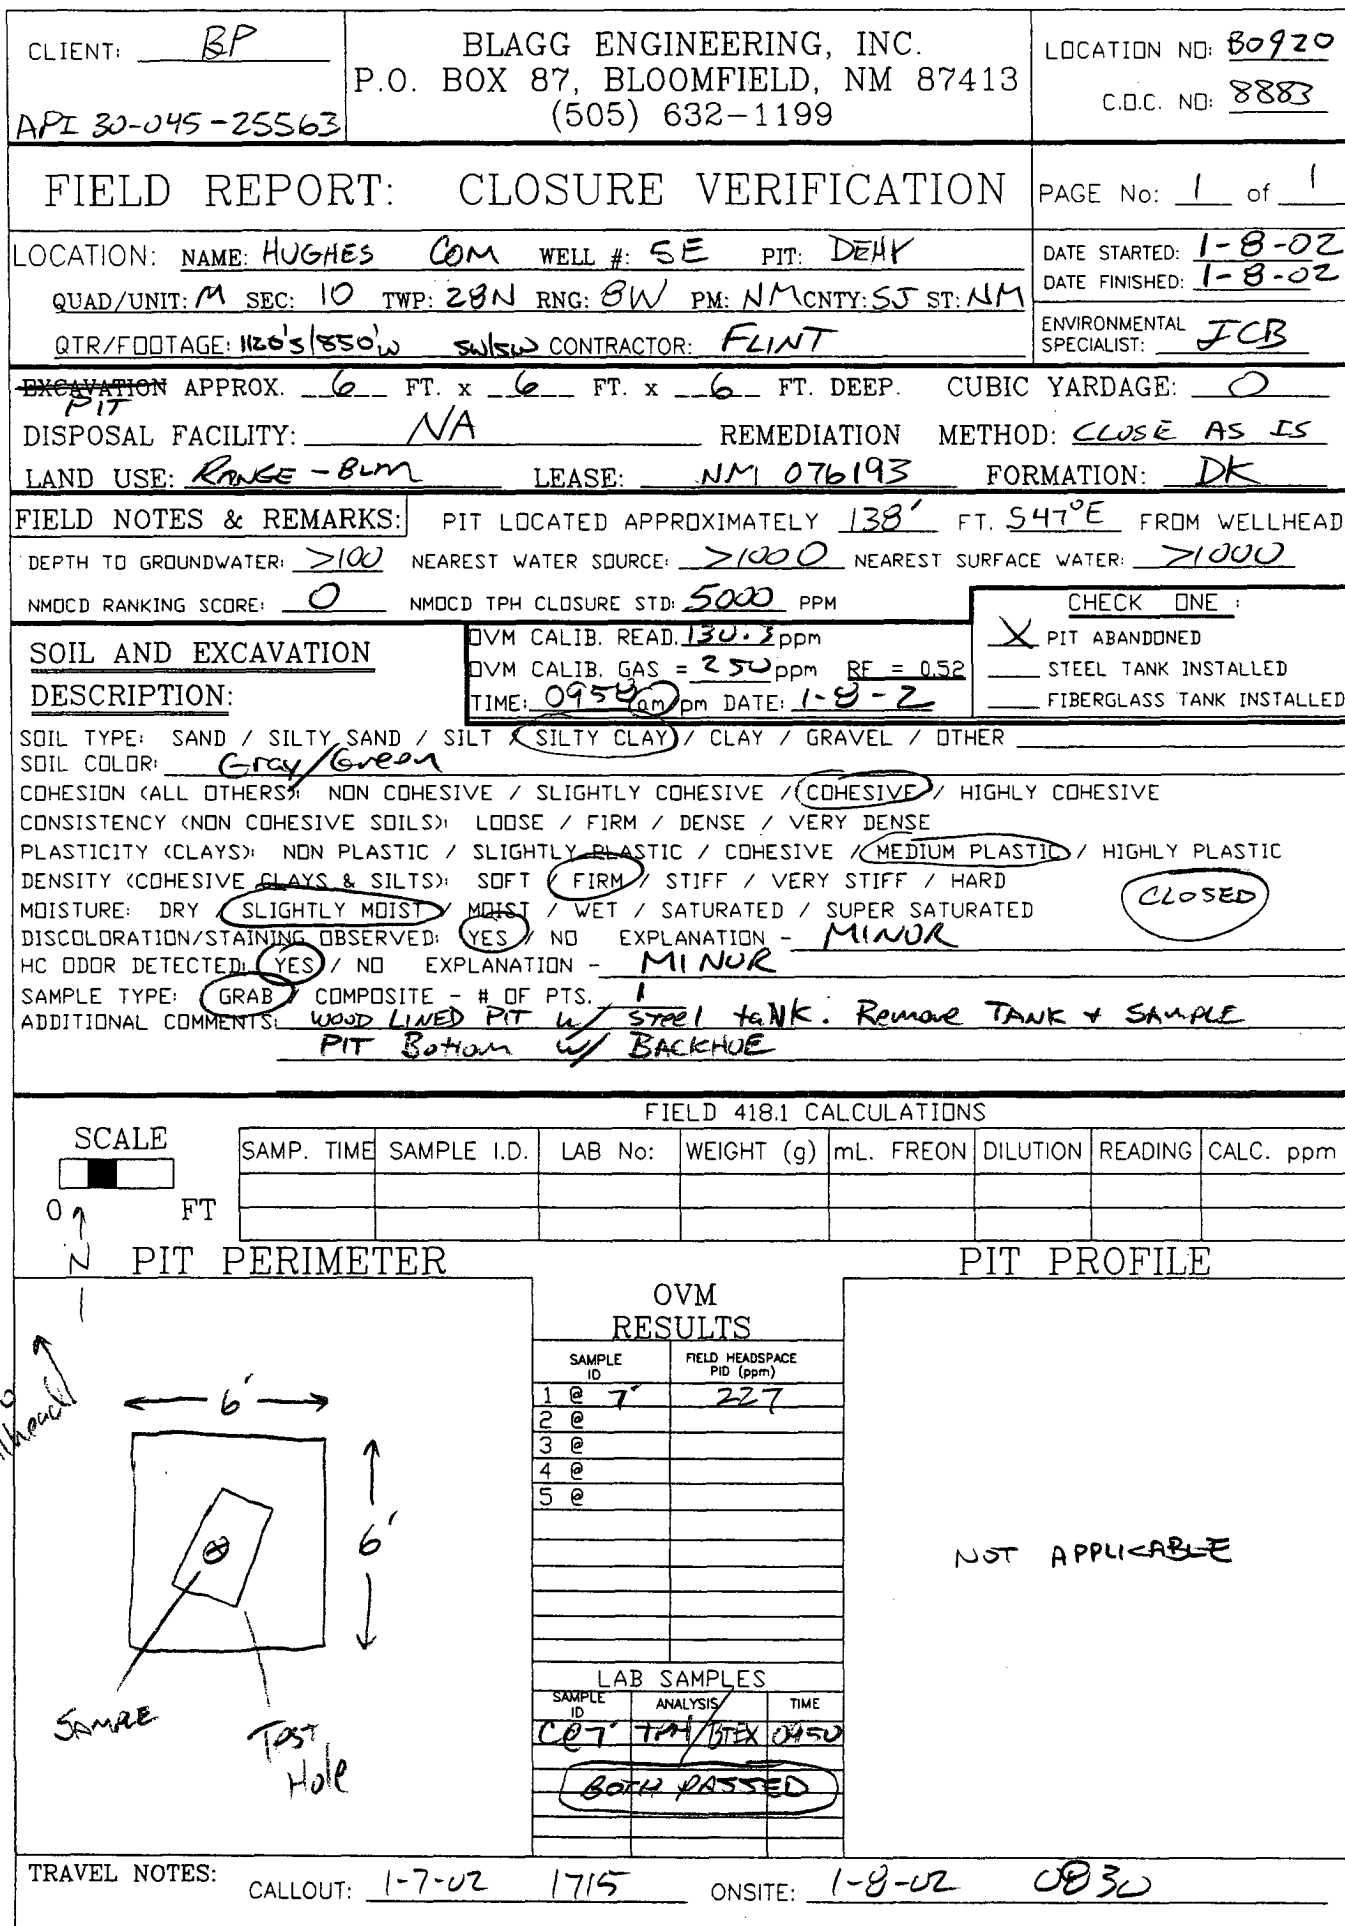 CLIENT: BP
API 30-045-25563
BLAGG ENGINEERING, INC.
P.O. BOX 87, BLOOMFIELD, NM 87413
(505) 632-1199
LOCATION NO: B0920
C.O.C. NO: 8883
FIELD REPORT: CLOSURE VERIFICATION
PAGE No: 1 of 1
LOCATION: NAME: HUGHES COM WELL #: 5E PIT: DEHY
QUAD/UNIT: M SEC: 10 TWP: 28N RNG: 8W PM: NM CNTY: SJ ST: NM
QTR/FOOTAGE: 1120'S/850'W SW/SW CONTRACTOR: FLINT
DATE STARTED: 1-8-02
DATE FINISHED: 1-8-02
ENVIRONMENTAL SPECIALIST: JCB
EXCAVATION APPROX. 6 FT. x 6 FT. x 6 FT. DEEP. CUBIC YARDAGE: 0
PIT
DISPOSAL FACILITY: NA REMEDIATION METHOD: CLOSE AS IS
LAND USE: RANGE - BLM LEASE: NM 076193 FORMATION: DK
FIELD NOTES & REMARKS: PIT LOCATED APPROXIMATELY 138' FT. S47°E FROM WELLHEAD
DEPTH TO GROUNDWATER: >100 NEAREST WATER SOURCE: >1000 NEAREST SURFACE WATER: >1000
NMOCD RANKING SCORE: 0 NMOCD TPH CLOSURE STD: 5000 PPM
CHECK ONE :
X PIT ABANDONED
STEEL TANK INSTALLED
FIBERGLASS TANK INSTALLED
SOIL AND EXCAVATION
DESCRIPTION:
OVM CALIB. READ. 130.3 ppm
OVM CALIB. GAS = 250 ppm RF = 0.52
TIME: 0958 am/pm DATE: 1-8-2
SOIL TYPE: SAND / SILTY SAND / SILT / SILTY CLAY / CLAY / GRAVEL / OTHER
SOIL COLOR: Gray/Green
COHESION (ALL OTHERS): NON COHESIVE / SLIGHTLY COHESIVE / COHESIVE / HIGHLY COHESIVE
CONSISTENCY (NON COHESIVE SOILS): LOOSE / FIRM / DENSE / VERY DENSE
PLASTICITY (CLAYS): NON PLASTIC / SLIGHTLY PLASTIC / COHESIVE / MEDIUM PLASTIC / HIGHLY PLASTIC
DENSITY (COHESIVE CLAYS & SILTS): SOFT / FIRM / STIFF / VERY STIFF / HARD
MOISTURE: DRY / SLIGHTLY MOIST / MOIST / WET / SATURATED / SUPER SATURATED
CLOSED
DISCOLORATION/STAINING OBSERVED: YES / NO EXPLANATION - MINOR
HC ODOR DETECTED: YES / NO EXPLANATION - MINOR
SAMPLE TYPE: GRAB / COMPOSITE - # OF PTS. 1
ADDITIONAL COMMENTS: WOOD LINED PIT w/ STEEL TANK. Remove TANK + SAMPLE
PIT Bottom w/ BACKHOE
FIELD 418.1 CALCULATIONS
SCALE
0 FT
SAMP. TIME SAMPLE I.D. LAB No: WEIGHT (g) mL. FREON DILUTION READING CALC. ppm
N
PIT PERIMETER
PIT PROFILE
6'
6'
SAMPLE
TEST
Hole
OVM
RESULTS
SAMPLE ID FIELD HEADSPACE PID (ppm)
1 @ 7' 227
2 @
3 @
4 @
5 @
NOT APPLICABLE
LAB SAMPLES
SAMPLE ID ANALYSIS TIME
C@7' TPH/BTEX 0950
BOTH PASSED
TRAVEL NOTES: CALLOUT: 1-7-02 1715 ONSITE: 1-8-02 0830